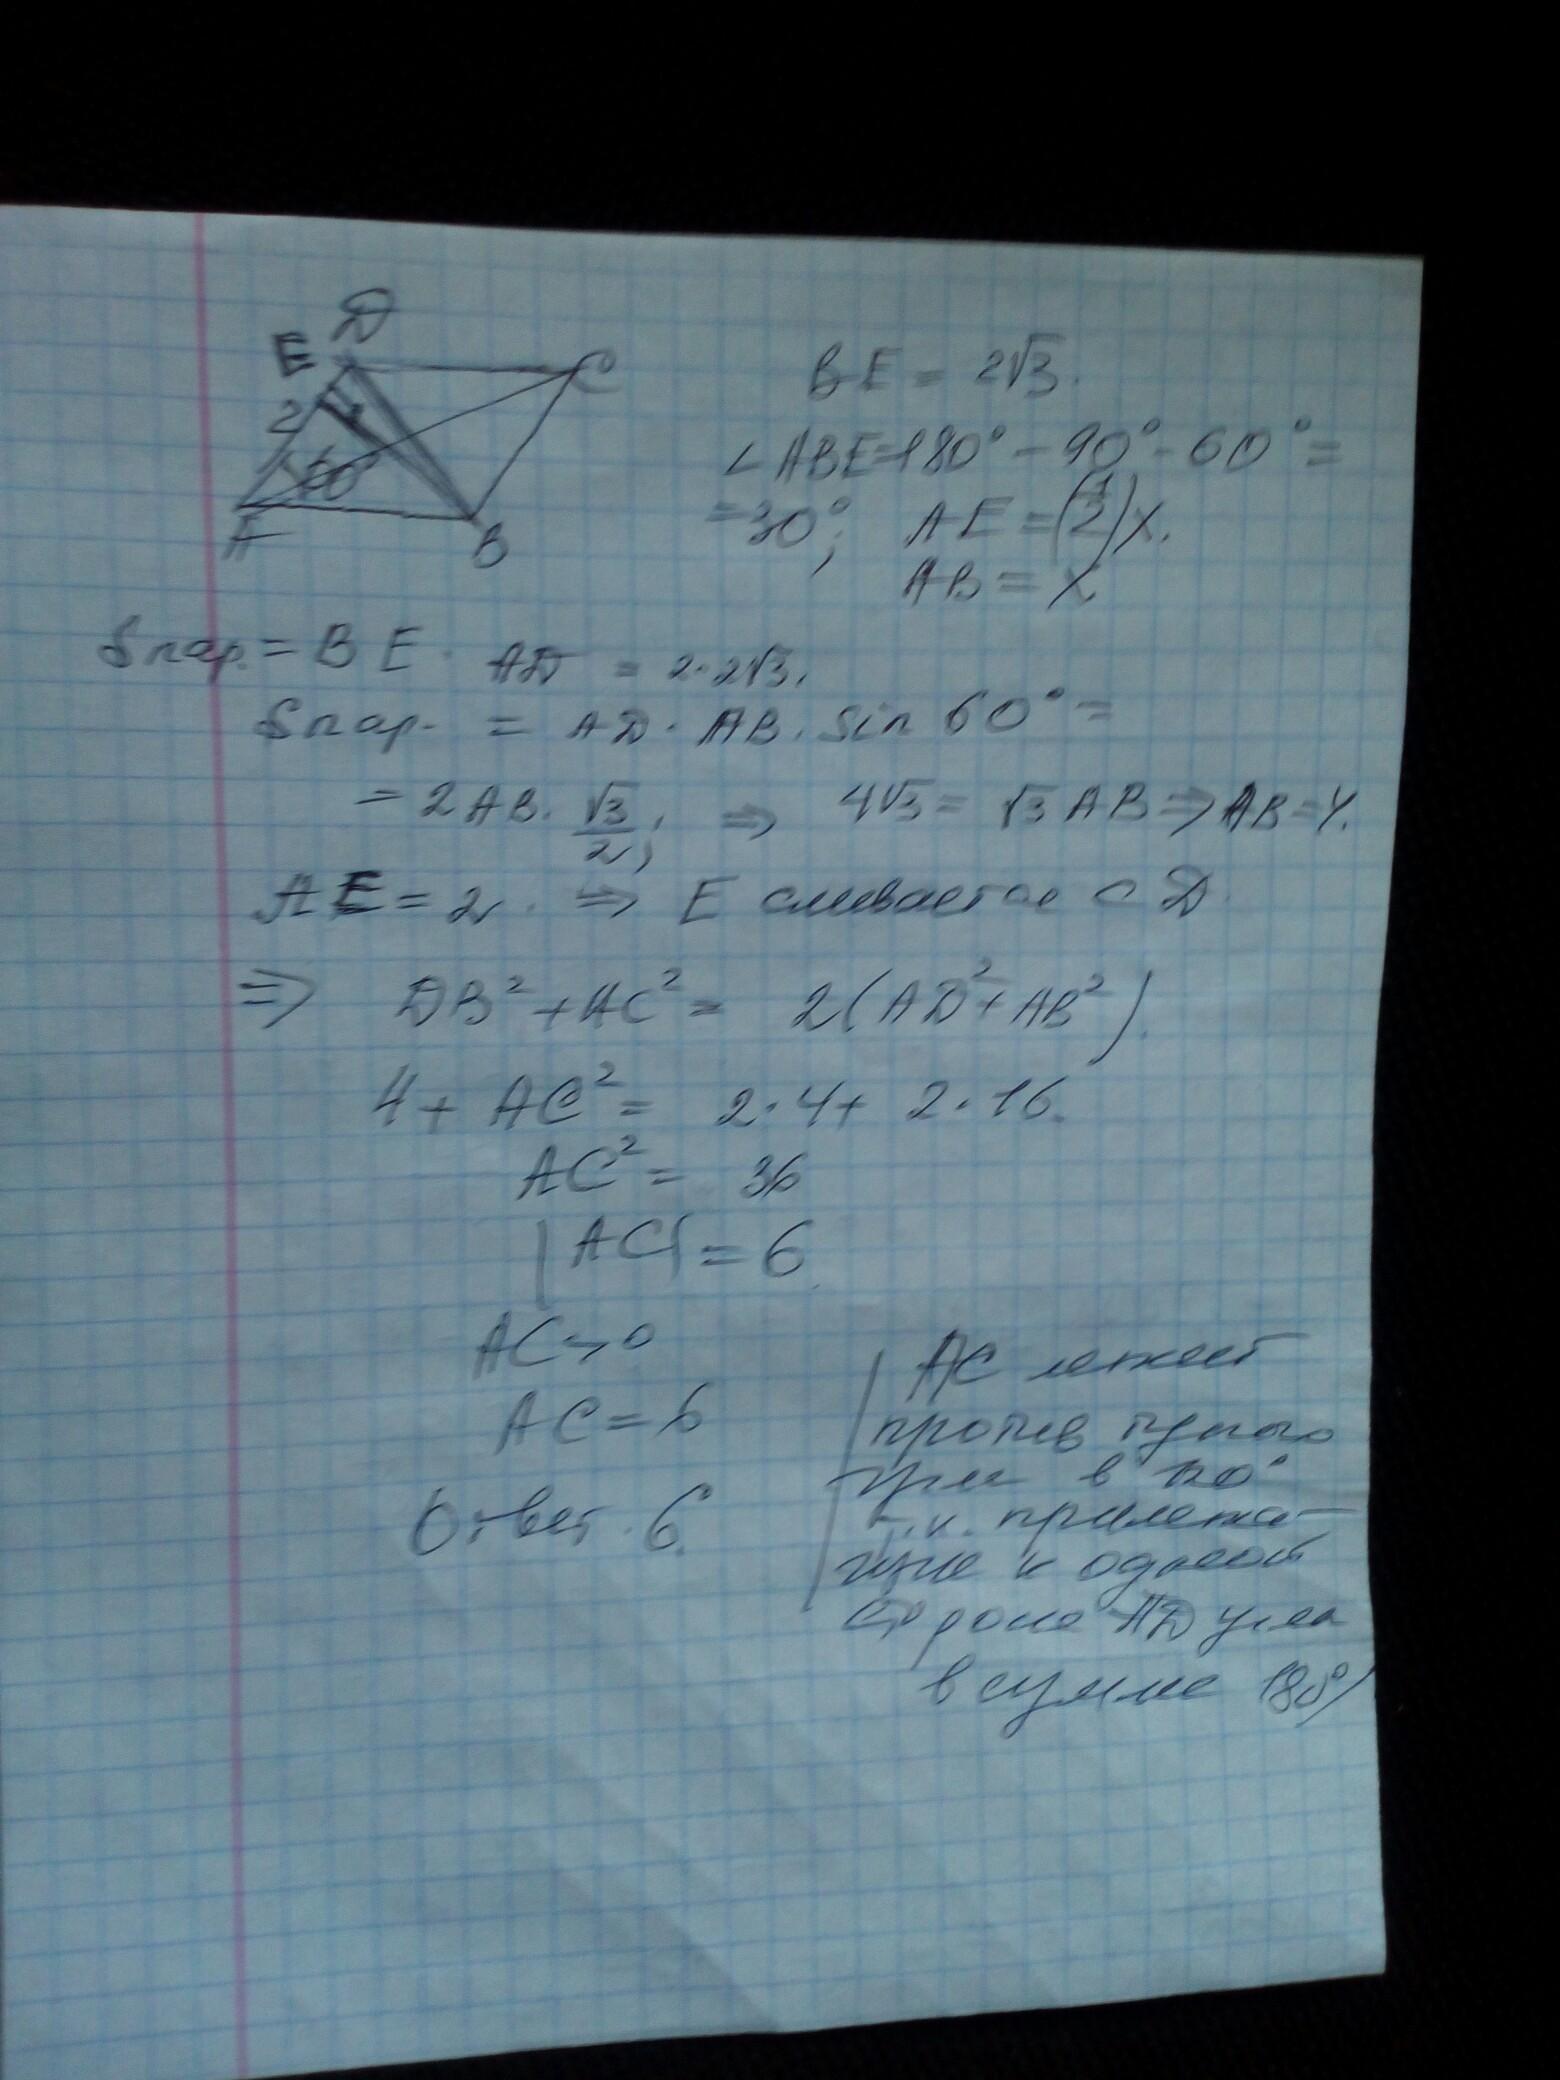 D
E
C
2
60
A
B
BE = 2√3.
∠ABE=180° - 90° - 60° =
= 30°; AE = (1/2)x.
AB = x
Sпар. = BE · AD = 2·2√3.
Sпар. = AD · AB · sin 60° =
= 2AB · √3/2; ⇒ 4√3 = √3 AB ⇒ AB = 4.
AE = 2. ⇒ E сливается с D.
⇒ DB² + AC² = 2(AD² + AB²).
4 + AC² = 2·4 + 2·16.
AC² = 36
|AC| = 6.
AC > 0
AC = 6
Ответ. 6.
AC лежит
против тупого
угла в 120°
т.к. прилежа-
щие к одной
стороне AD угла
в сумме 180°)